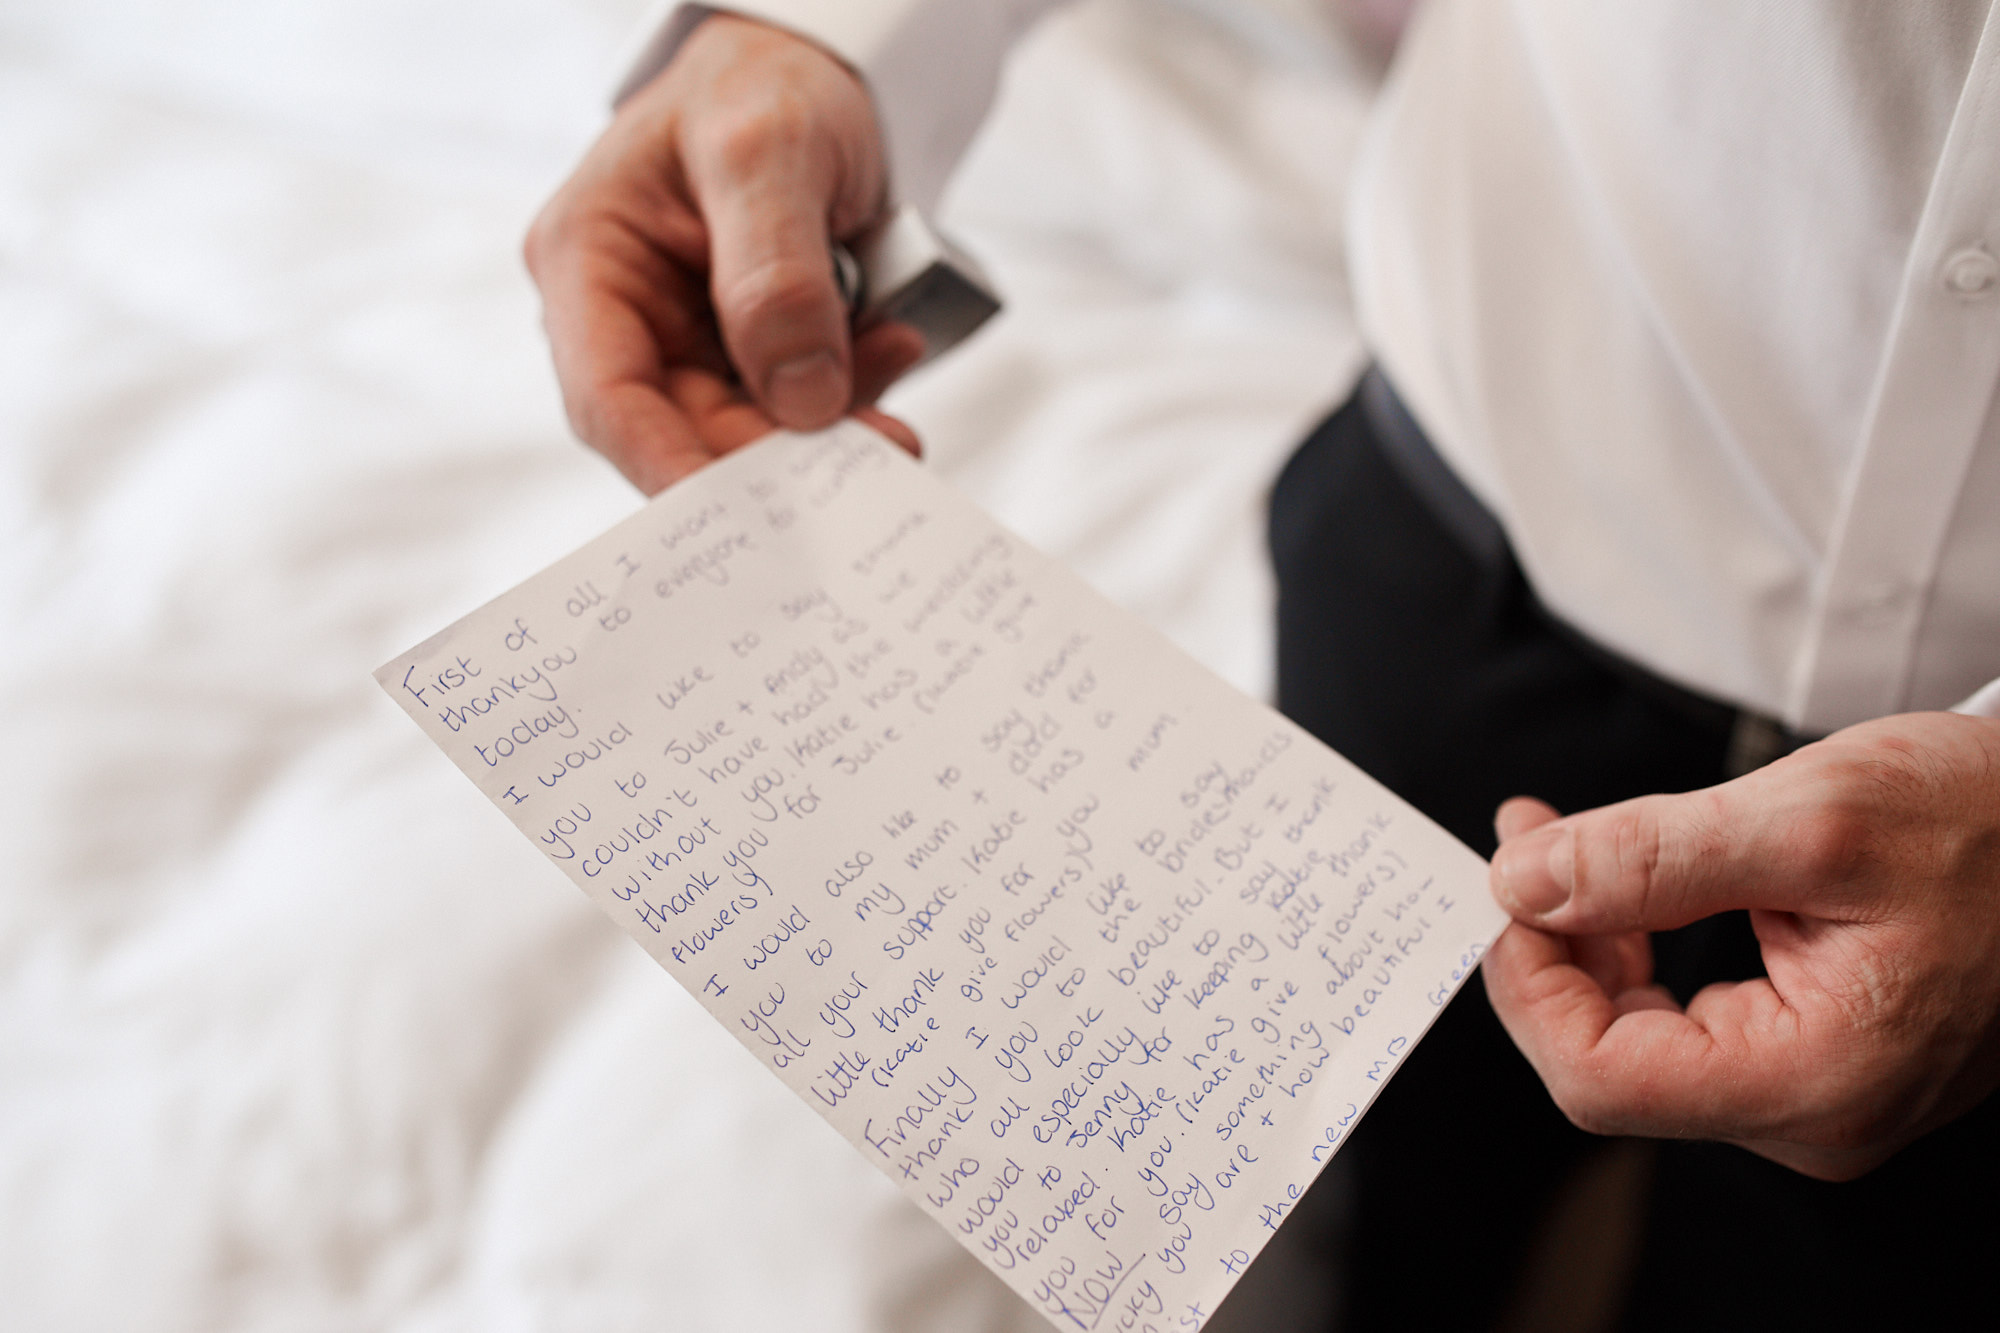 First of all I want to
thankyou to everyone for coming
today.
I would like to say thank
you to Julie + Andy as we
couldn't have had the wedding
without you. Katie has a little
thank you for Julie. (Katie give
flowers)
I would also like to say thank
you to my mum + dad for
all your support. Katie has a
little thank you for you mum
(Katie give flowers)
Finally I would like to say
thank you to the bridesmaids
who all look beautiful. But I
would especially like to say thank
you to Jenny for keeping Katie
relaxed. Katie has a little thank
you for you. (Katie give flowers)
NOW say something about how
you are + how beautiful I
to the new Mrs Green